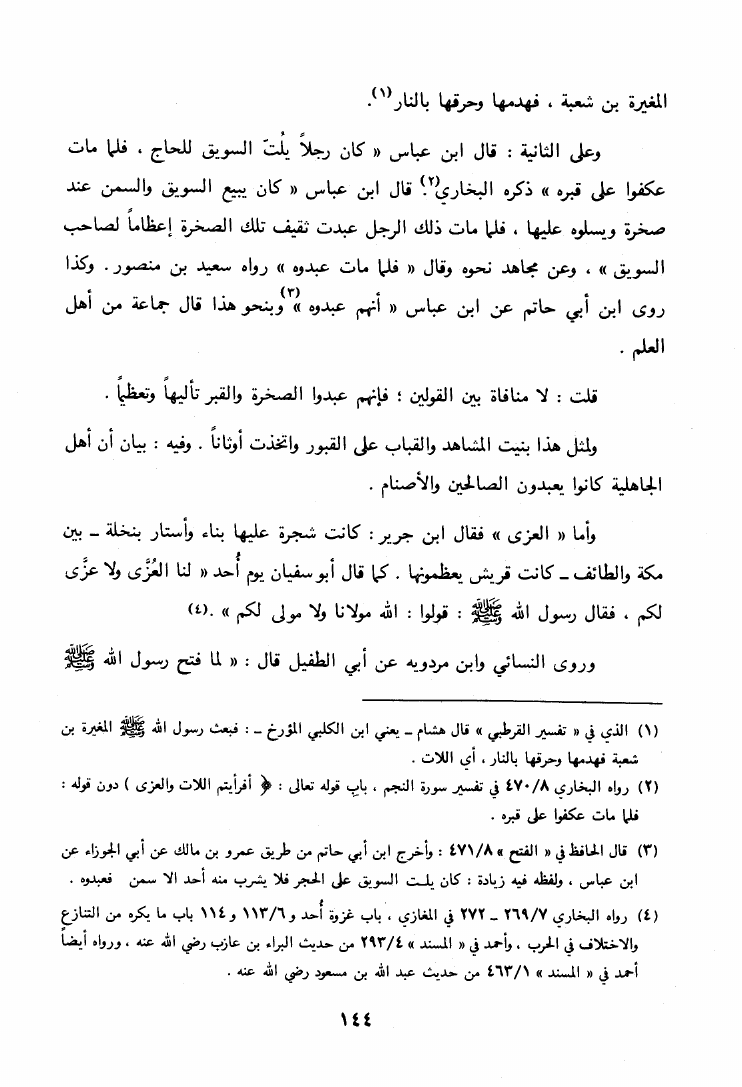 المغيرة بن شعبة ، فهدمها وحرقها بالنار(١).
وعلى الثانية : قال ابن عباس « كان رجلاً يلُتّ السويق للحاج ، فلما مات
عكفوا على قبره » ذكره البخاري(٢). قال ابن عباس « كان يبيع السويق والسمن عند
صخرة ويسلوه عليها ، فلما مات ذلك الرجل عبدت ثقيف تلك الصخرة إعظاماً لصاحب
السويق » ، وعن مجاهد نحوه وقال « فلما مات عبدوه » رواه سعيد بن منصور . وكذا
روى ابن أبي حاتم عن ابن عباس « أنهم عبدوه »(٣) وبنحو هذا قال جماعة من أهل
العلم .
قلت : لا منافاة بين القولين ؛ فإنهم عبدوا الصخرة والقبر تأليهاً وتعظيماً .
ولمثل هذا بنيت المشاهد والقباب على القبور واتخذت أوثاناً . وفيه : بيان أن أهل
الجاهلية كانوا يعبدون الصالحين والأصنام .
وأما « العزى » فقال ابن جرير : كانت شجرة عليها بناء وأستار بنخلة ــ بين
مكة والطائف ــ كانت قريش يعظمونها . كما قال أبو سفيان يوم أُحد « لنا العُزَّى ولا عزَّى
لكم ، فقال رسول الله ﷺ : قولوا : الله مولانا ولا مولى لكم » .(٤)
وروى النسائي وابن مردويه عن أبي الطفيل قال : « لما فتح رسول الله ﷺ
(١) الذي في « تفسير القرطبي » قال هشام ــ يعني ابن الكلبي المؤرخ ــ : فبعث رسول الله ﷺ المغيرة بن
شعبة فهدمها وحرقها بالنار ، أي اللات .
(٢) رواه البخاري ٤٧٠/٨ في تفسير سورة النجم ، باب قوله تعالى : ﴿ أفرأيتم اللات والعزى ) دون قوله :
فلما مات عكفوا على قبره .
(٣) قال الحافظ في « الفتح » ٤٧١/٨ : وأخرج ابن أبي حاتم من طريق عمرو بن مالك عن أبي الجوزاء عن
ابن عباس ، ولفظه فيه زيادة : كان يلت السويق على الحجر فلا يشرب منه أحد الا سمن فعبدوه .
(٤) رواه البخاري ٢٦٩/٧ ــ ٢٧٢ في المغازي ، باب غزوة أُحد و ١١٣/٦ و ١١٤ باب ما يكره من التنازع
والاختلاف في الحرب ، وأحمد في « المسند » ٢٩٣/٤ من حديث البراء بن عازب رضي الله عنه ، ورواه أيضاً
أحمد في « المسند » ٤٦٣/١ من حديث عبد الله بن مسعود رضي الله عنه .
١٤٤